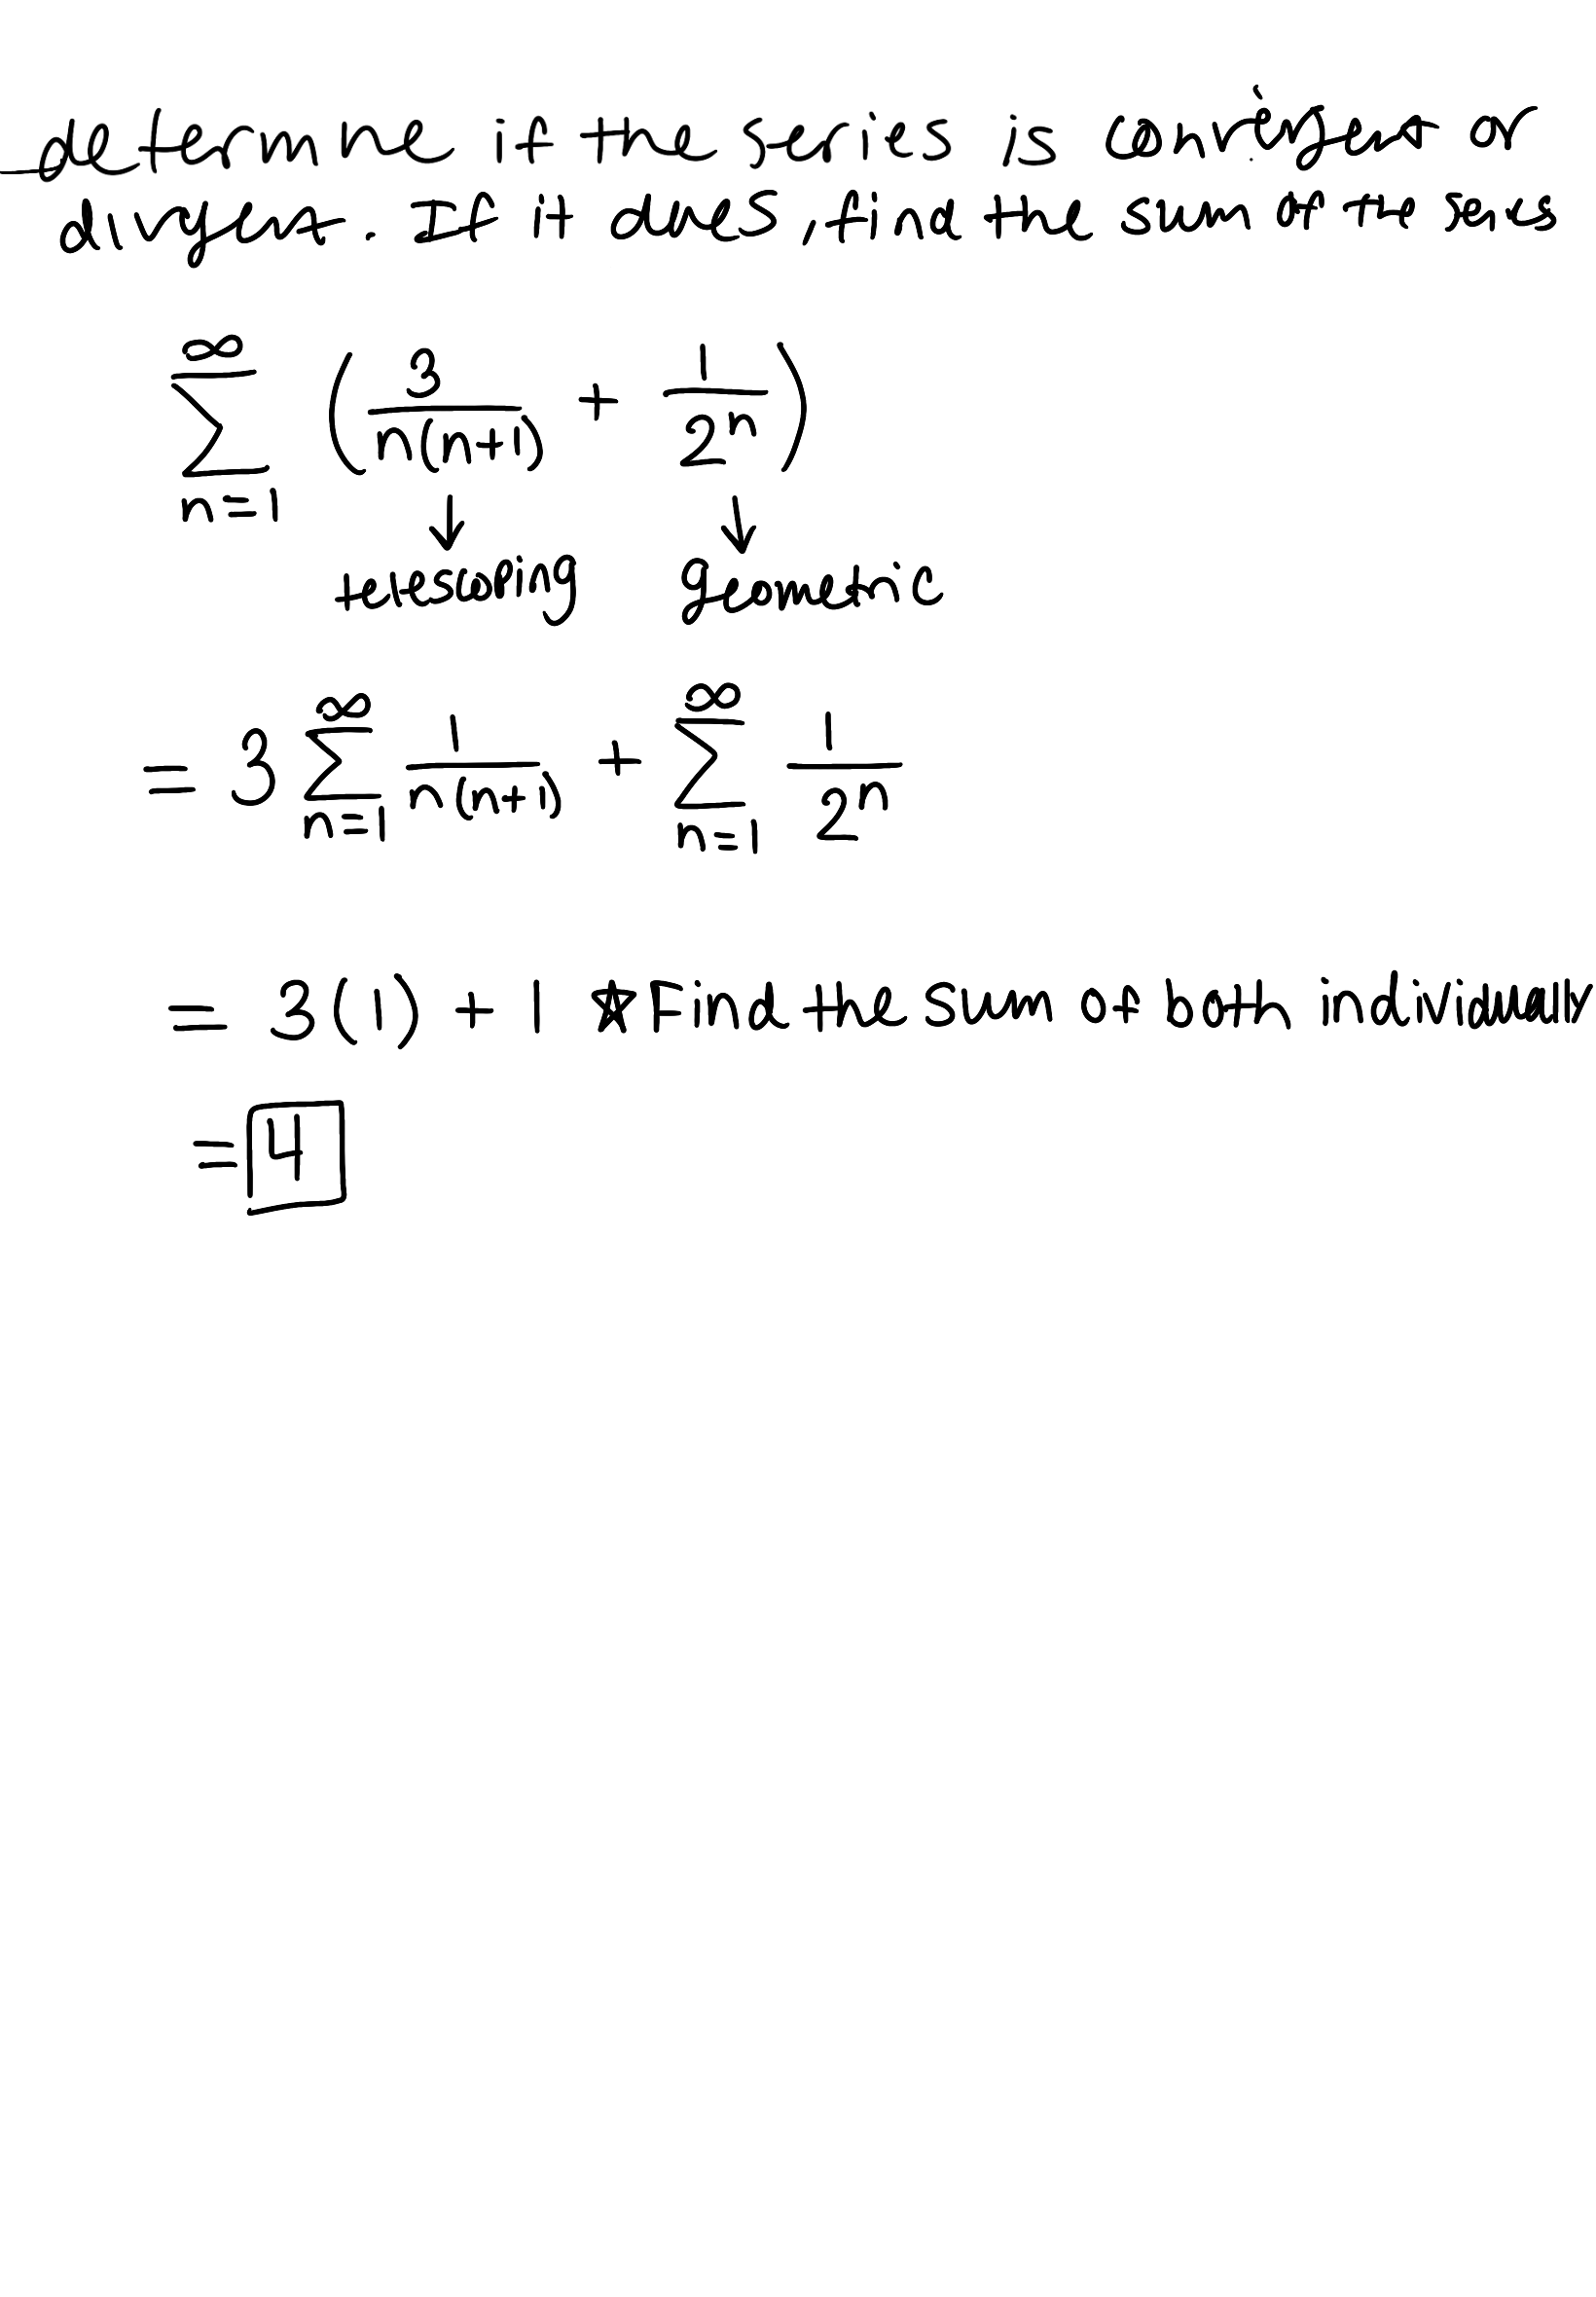 determine if the series is convergent or
divergent. If it does, find the sum of the series
∞ ∑ n=1 ( 3/n(n+1) + 1/2^n )
↓ ↓
telescoping geometric
= 3 ∞ ∑ n=1 1/n(n+1) + ∞ ∑ n=1 1/2^n
= 3(1) + 1 ☆ Find the sum of both individually
= 4